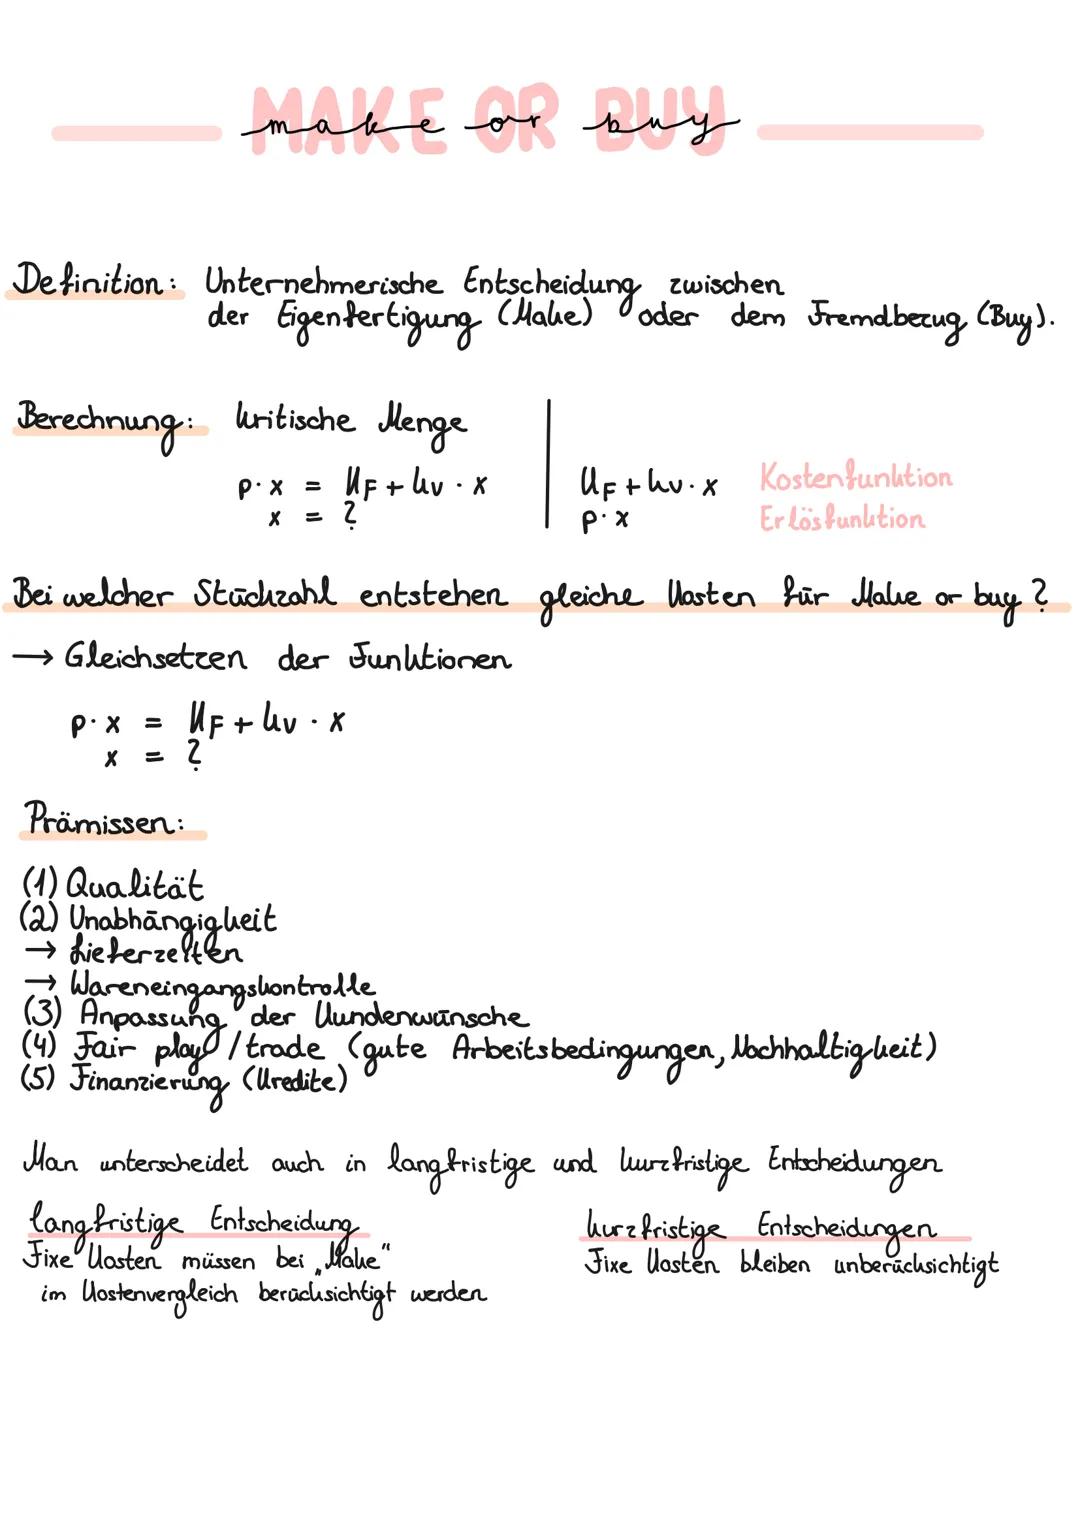 MAKE OR BUY
make or buy
Definition: Unternehmerische Entscheidung zwischen
der Eigenfertigung (Make) oder dem Fremdbezug (Buy).
Berechnung: kritische Menge
p·x = KF + kv · x
x = ?
KF + kv · x Kostenfunktion
p·x Erlösfunktion
Bei welcher Stückzahl entstehen gleiche Kosten für Make or buy ?
→ Gleichsetzen der Funktionen
p·x = KF + kv · x
x = ?
Prämissen:
(1) Qualität
(2) Unabhängigkeit
→ Lieferzeiten
→ Wareneingangskontrolle
(3) Anpassung der Kundenwünsche
(4) Fair play / trade (gute Arbeitsbedingungen, Nachhaltigkeit)
(5) Finanzierung (Kredite)
Man unterscheidet auch in langfristige und kurzfristige Entscheidungen
langfristige Entscheidung
Fixe Kosten müssen bei „Make"
im Kostenvergleich berücksichtigt werden
kurzfristige Entscheidungen
Fixe Kosten bleiben unberücksichtigt